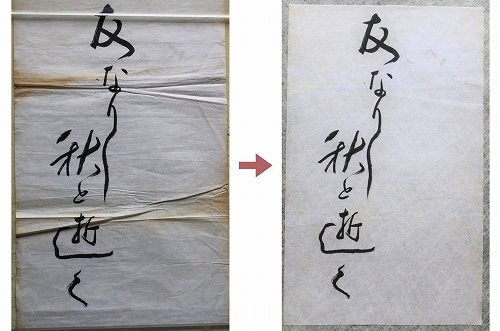 友なりし
秋と逝く
友なりし
秋と逝く